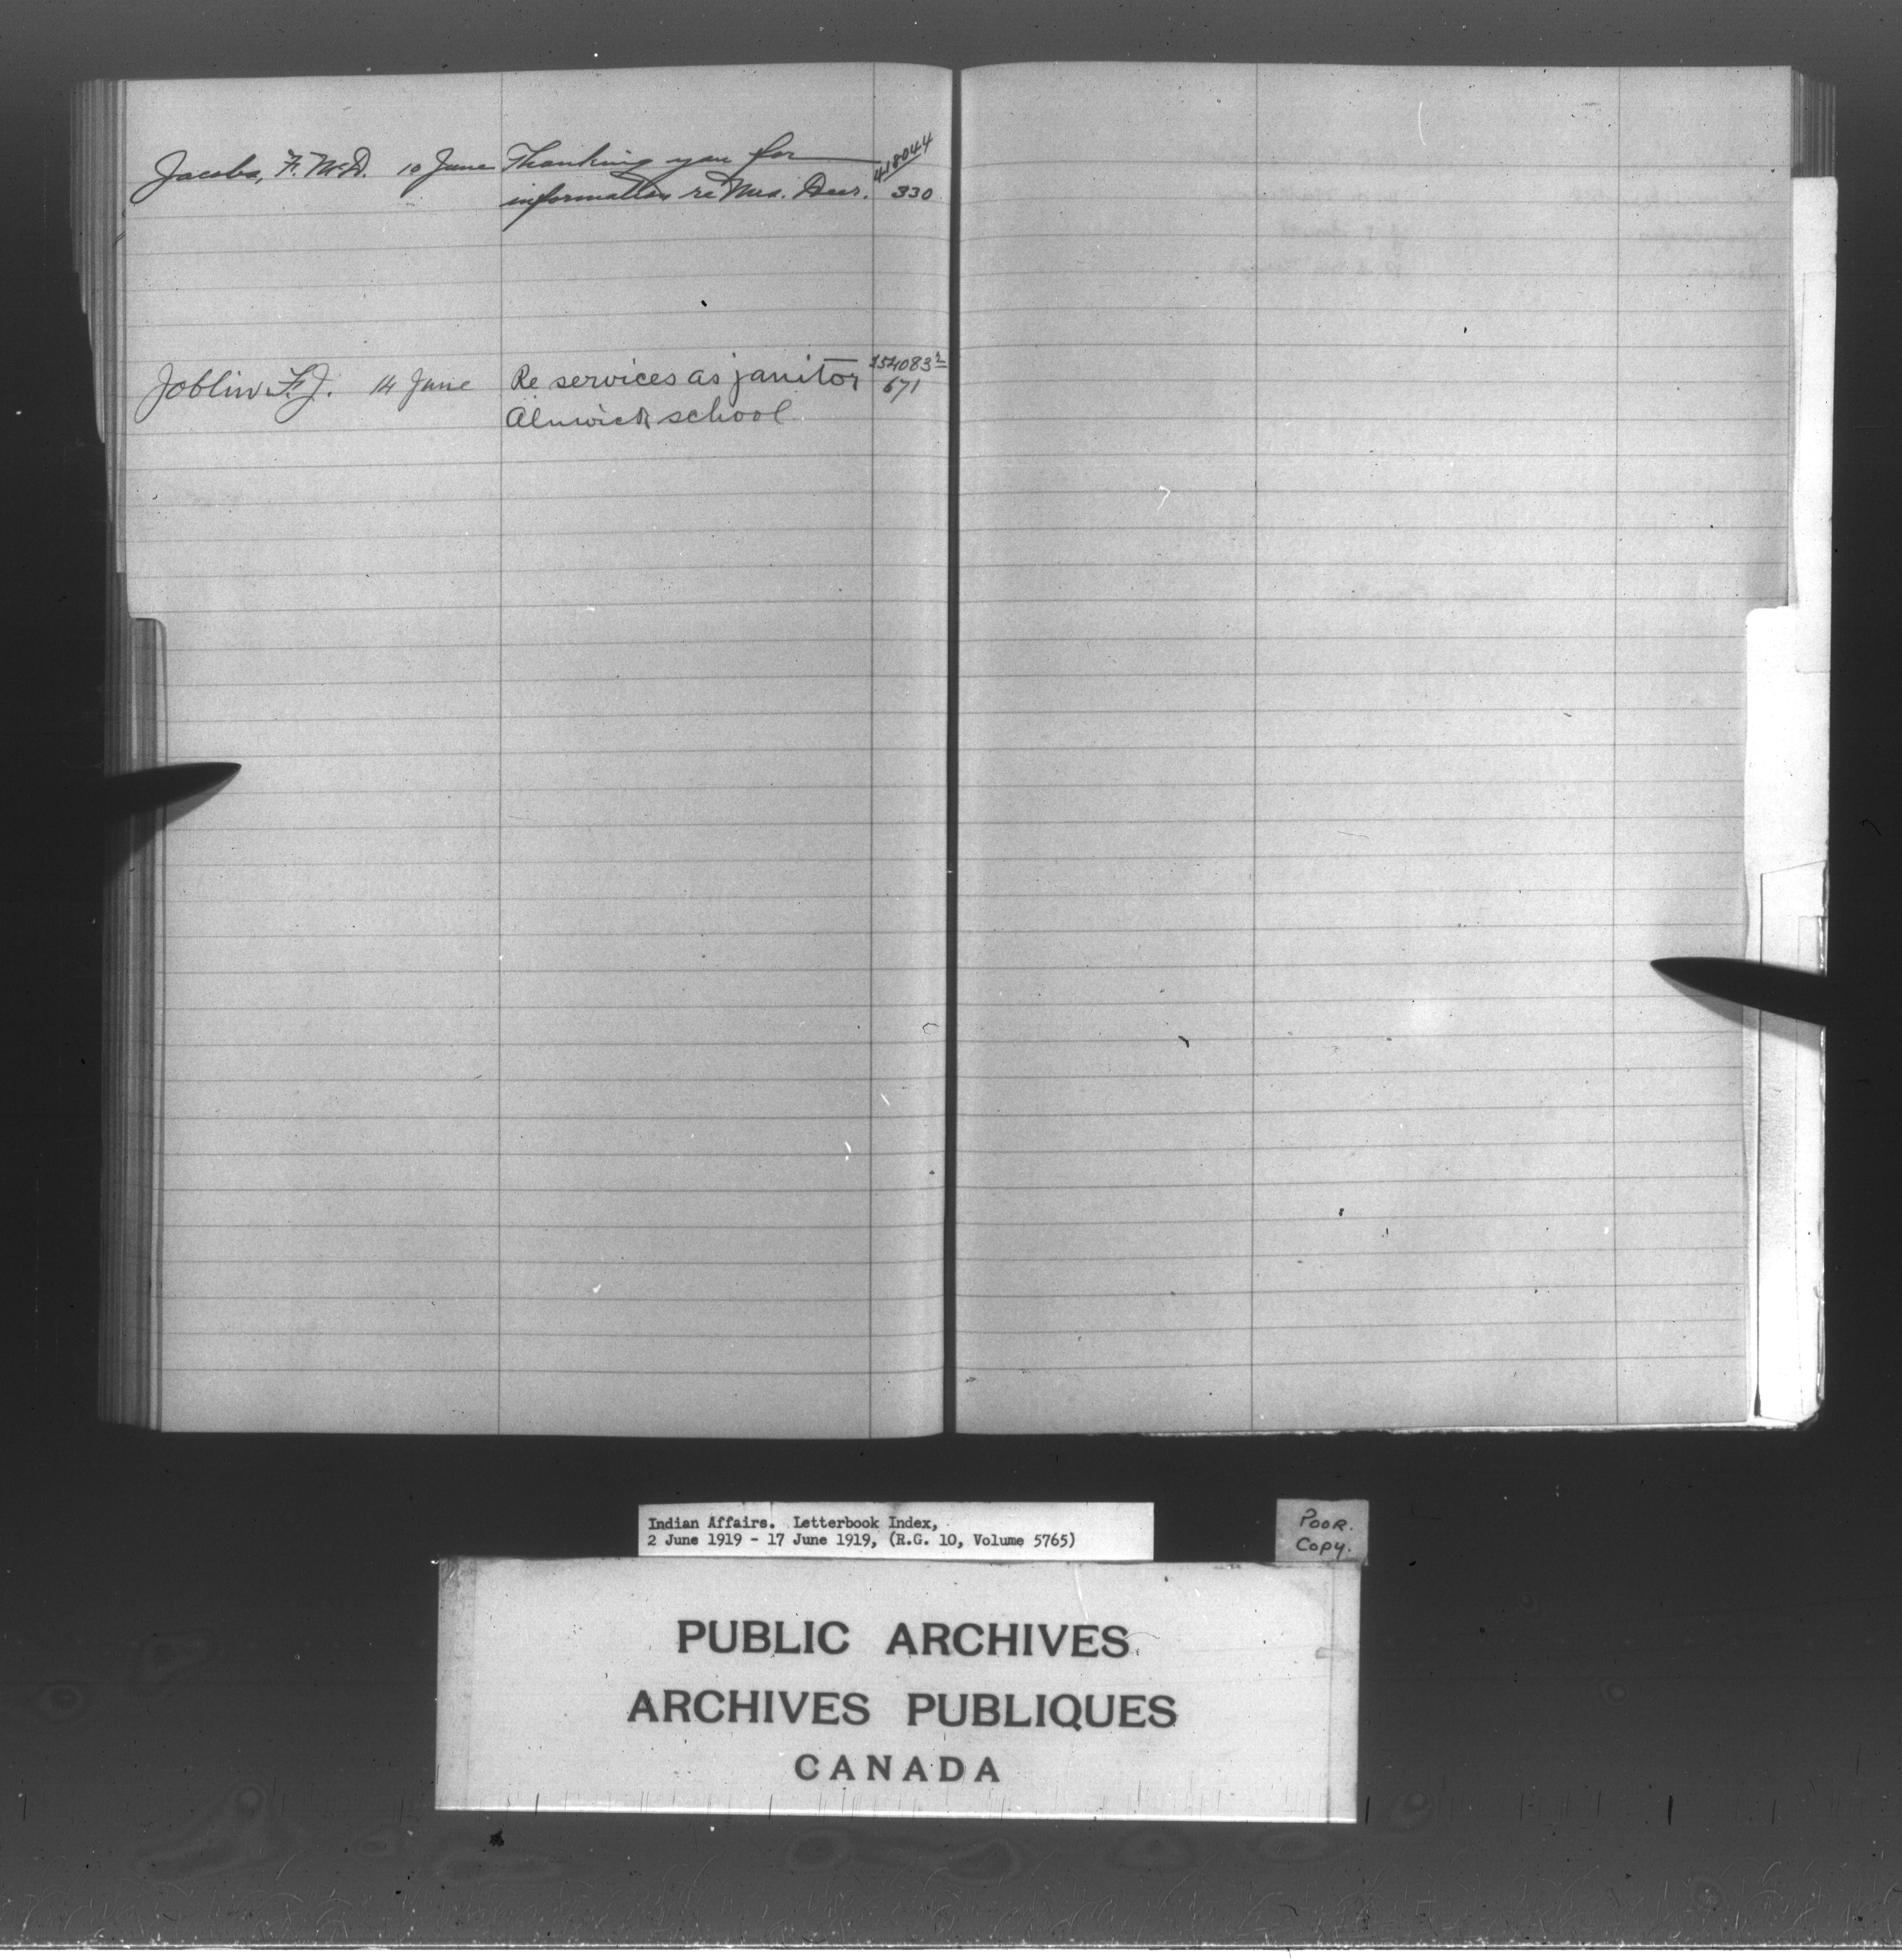 Jacobs, F. McD. 10 June Thanking you for 418044
information re Mrs. Deer. 330
Joblin F.J. 14 June Re services as janitor 254083²
Alnwick school 671
Indian Affairs. Letterbook Index,
2 June 1919 - 17 June 1919, (R.G. 10, Volume 5765)
POOR.
COPY.
PUBLIC ARCHIVES
ARCHIVES PUBLIQUES
CANADA